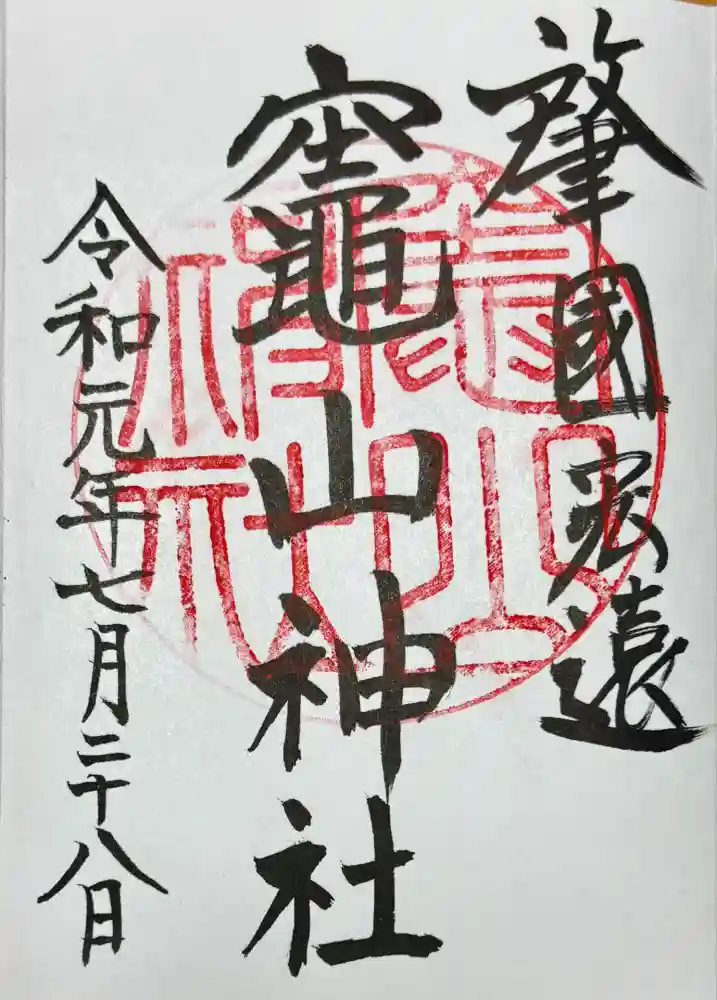 肇國宏遠
竈山神社
令和元年七月二十八日